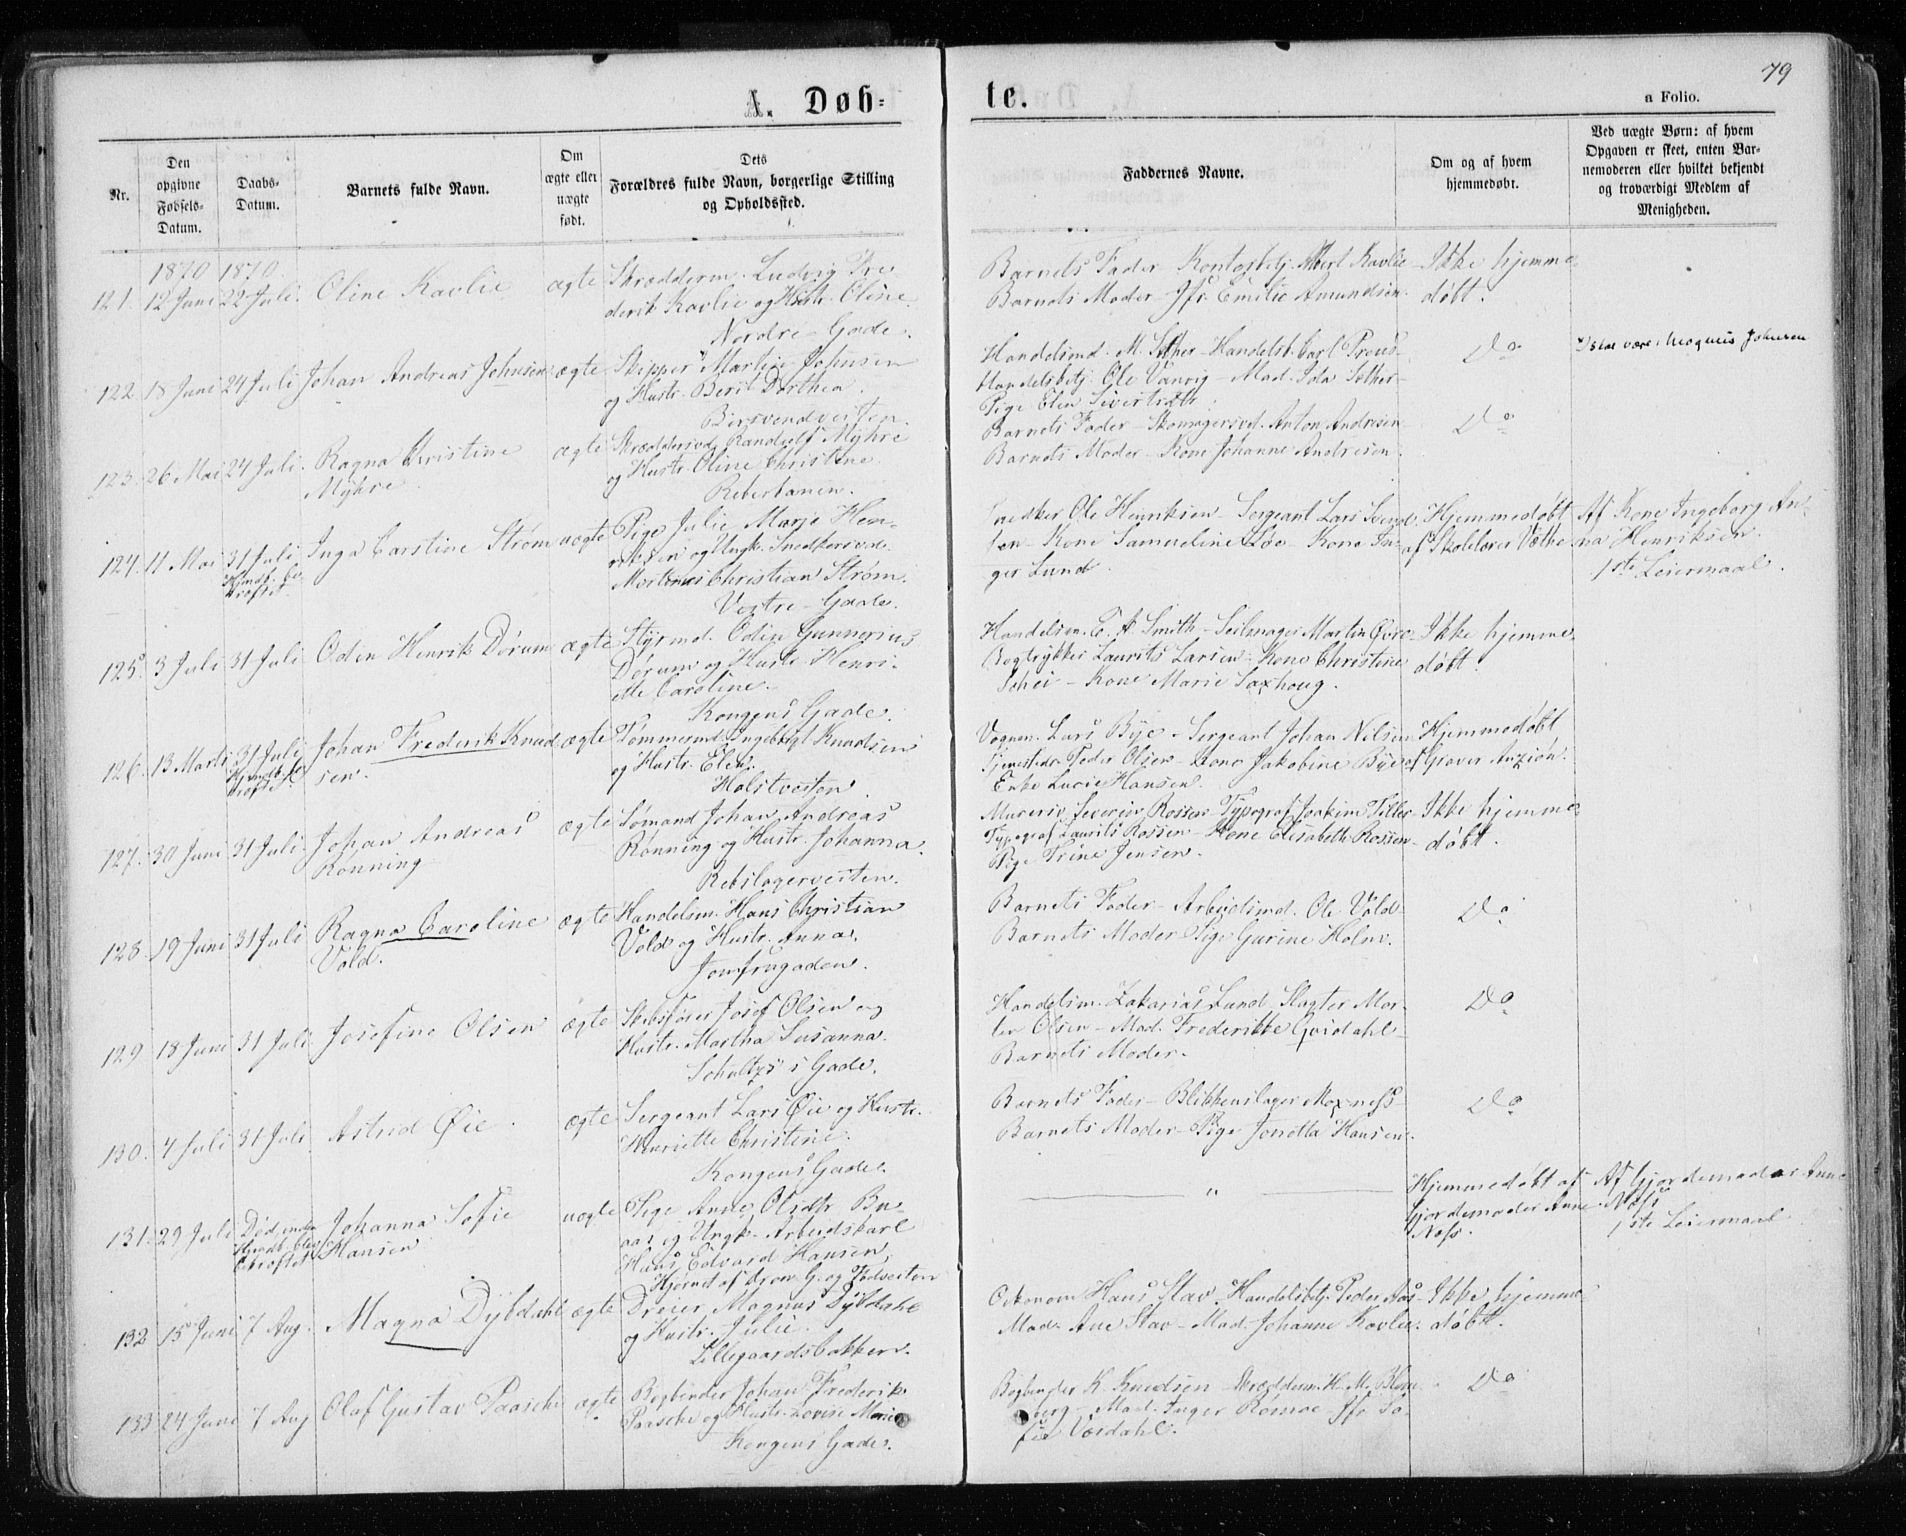 79
A. Døb-
te.
a Folio.
Nr.
Den opgivne Fødsels-Datum.
Daabs-Datum.
Barnets fulde Navn.
Om ægte eller uægte født.
Dets Forældres fulde Navn, borgerlige Stilling og Opholdssted.
Faddernes Navne.
Om og af hvem hjemmedøbt.
Ved uægte Børn: af hvem Opgaven er skeet, enten Barnemoderen eller hvilket bekjendt og troværdigt Medlem af Menigheden.
1870 1870.
121. 12 Juni 22 Juli. Oline Kavlie ægte Skrædderm. Ludvig Fre-
derik Kavlie og Hustr. Oline.
Nordre-Gade.
Barnets Fader - Kontorbetj. Albert Kavlie- Ikke hjemme
Barnets Moder - Jfr. Emilie Amundsen. døbt.
122. 18 Juni 24 Juli Johan Andreas Johnsen ægte Skipper Martin Johnsen
og Hustr. Berit Dorthea.
Bersvendveiten.
Handelsmd. M. Sæther - Handelsb. Carl Prous- Do
Handelsbetj. Ole Vanvig - Mad. Ida Sæther-
Pige Elen Sivertsdtr.
skal være: Magnus Johnsen
123. 26 Mai 24 Juli. Ragna Christine ægte Skræddersvd. Randulf Myhre
Myhre. og Hustr. Oline Christine.
Reberbanen.
Barnets Fader - Skomagersvd. Anton Andresen Do
Barnets Moder - Kone Johanne Andresen.
124. 11 Mai 31 Juli Inga Carstine Strøm uægte Pige Julie Marie Hen-
Hjmdb. be-
kræftet.
riksen og Ungk. Snedkersvd.
Mortinus Christian Strøm.
Vestre-Gade.
Snedker Ole Henriksen Sergeant Lars Svend- Hjemmedøbt Af Kone Ingeborg An-
sen - Kone Samueline Löe - Kone In- af Skolelærer Væthe na Henriksen.
ger Lund. 1ste Leiermaal.
125. 3 Juli 31 Juli Odin Henrik Dørum ægte Styrmd. Odin Gunnerius
Dørum og Hustr. Henri-
ette Caroline.
Kongens Gade.
Handelsm. E. A. Smith - Seilmager Martin Øvre- Ikke hjemme
Bogtrykker Laurits Larsen - Kone Christine døbt.
Schei - Kone Marie Saxhoug.
126. 13 Marts 31 Juli Johan Frederik Knud ægte Tømmermd. Ingebrigt Knudsen
Hjmdb. be-
kræftet. sen. og Hustr. Elen.
Holstveiten.
Vognm. Lars Bye - Sergeant Johan Nilsen Hjemmedøbt
Tjenestedr. Peder Olsen - Kone Jakobine Bye af Graver Anzion.
Enke Lucie Hansen.
127. 30 Juni 31 Juli. Johan Andreas ægte Sømand Johan Andreas
Rønning Rønning og Hustr. Johanna.
Rebslagerveiten.
Murersv. Severin Rossen Typograf Joakim Tiller- Ikke hjemme
Typograf Laurits Rossen - Kone Elisabeth Rossen- døbt.
Pige Trine Jensen.
128. 19 Juni 31 Juli Ragna Caroline ægte Handelsm. Hans Christian
Vold. Vold og Hustr. Anna.
Jomfrugaden.
Barnets Fader - Arbeidsmd. Ole Vold- Do
Barnets Moder Pige Gurine Holm.
129 18 Juni 31 Juli Josefine Olsen ægte Skibsfører Josef Olsen og
Hustr. Martha Susanna.
Schultzs's Gade.
Handelsm. Zakarias Lund Slagter Mor- Do
ten Olsen - Mad. Frederikke Qvidahl-
Barnets Moder.
130. 4 Juli 31 Juli Astrid Øie. ægte Sergeant Lars Øie og Hustr.
Henriette Christine.
Kongens Gade.
Barnets Fader - Blikkenslager Moxness- Do
Barnets Moder - Pige Jonetta Hansen.
131. 29 Juli Død inden
Hjmdb. blev
bekræftet Johanna Sofie
Hansen uægte Pige Anne Olsdtr. Bu-
aas og Ungk. Arbeidskarl
Hans Edvard Hansen,
Hjørnet af Dron. G. og Fadveiten
" Hjemmedøbt af Af Gjordemoder Anne
Gjordemoder Anne Næss
Næss. 1ste Leiermaal
132 15 Juni 7 Aug. Magna Dybdahl ægte Dreier Magnus Dybdahl
og Hustr. Julie.
Lillegaardsbakken.
Oekonom Hans Stav Handelsbetj. Peder Aas- Ikke hjemme
Mad. Ane Stav - Mad. Johanne Kavlie. døbt.
133 24 Juni 7 Aug Olaf Gustav Paasche ægte Bogbinder Johan Frederik
Paasche og Hustr. Lovise Marie
Kongens Gade.
Bogbinder K. Knudsen Skrædderm. H. M. Blom Do
berg - Mad. Inger Romoe - Jfr. So-
fie Værdahl.